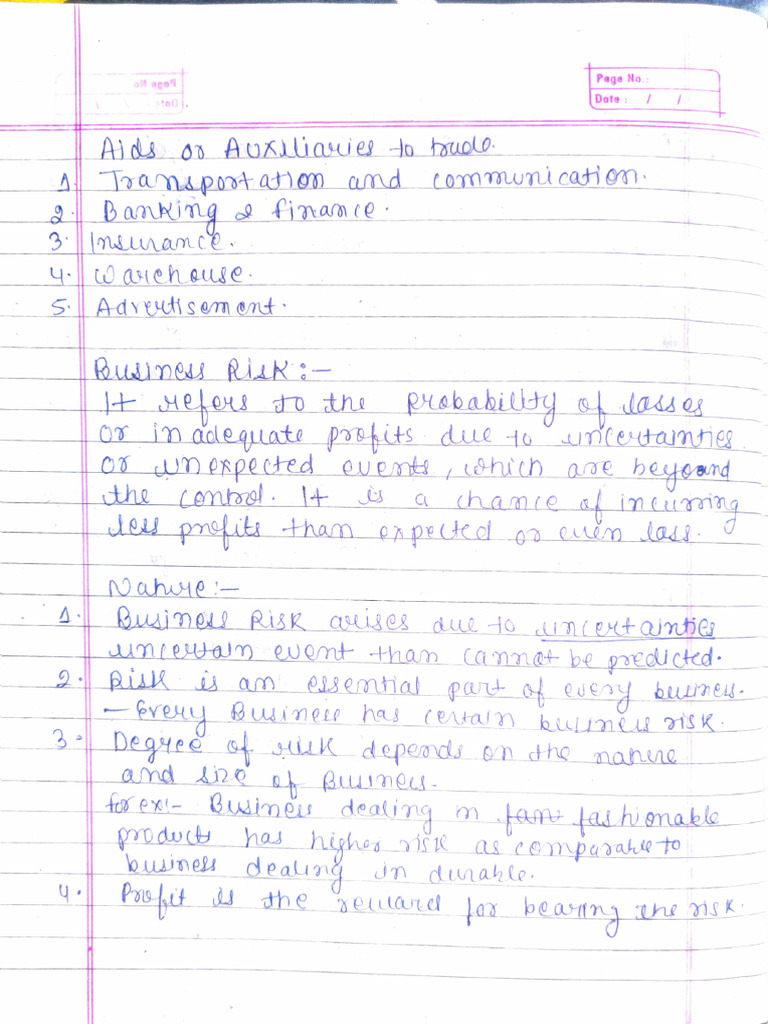 Page No.:
Date : / /
Aids or Auxiliaries to trade.
1. Transportation and communication.
2. Banking & finance.
3. Insurance.
4. Warehouse.
5. Advertisement.
Business Risk:-
It refers to the probability of losses
or inadequate profits due to uncertainties
or unexpected events, which are beyond
the control. It is a chance of incurring
less profits than expected or even loss.
Nature:-
1. Business Risk arises due to uncertainties
uncertain event than cannot be predicted.
2. Risk is an essential part of every business.
- Every Business has certain business risk.
3. Degree of risk depends on the nature
and size of Business.
for ex:- Business dealing in fashionable
products has higher risk as comparable to
business dealing in durable.
4. Profit is the reward for bearing the risk.